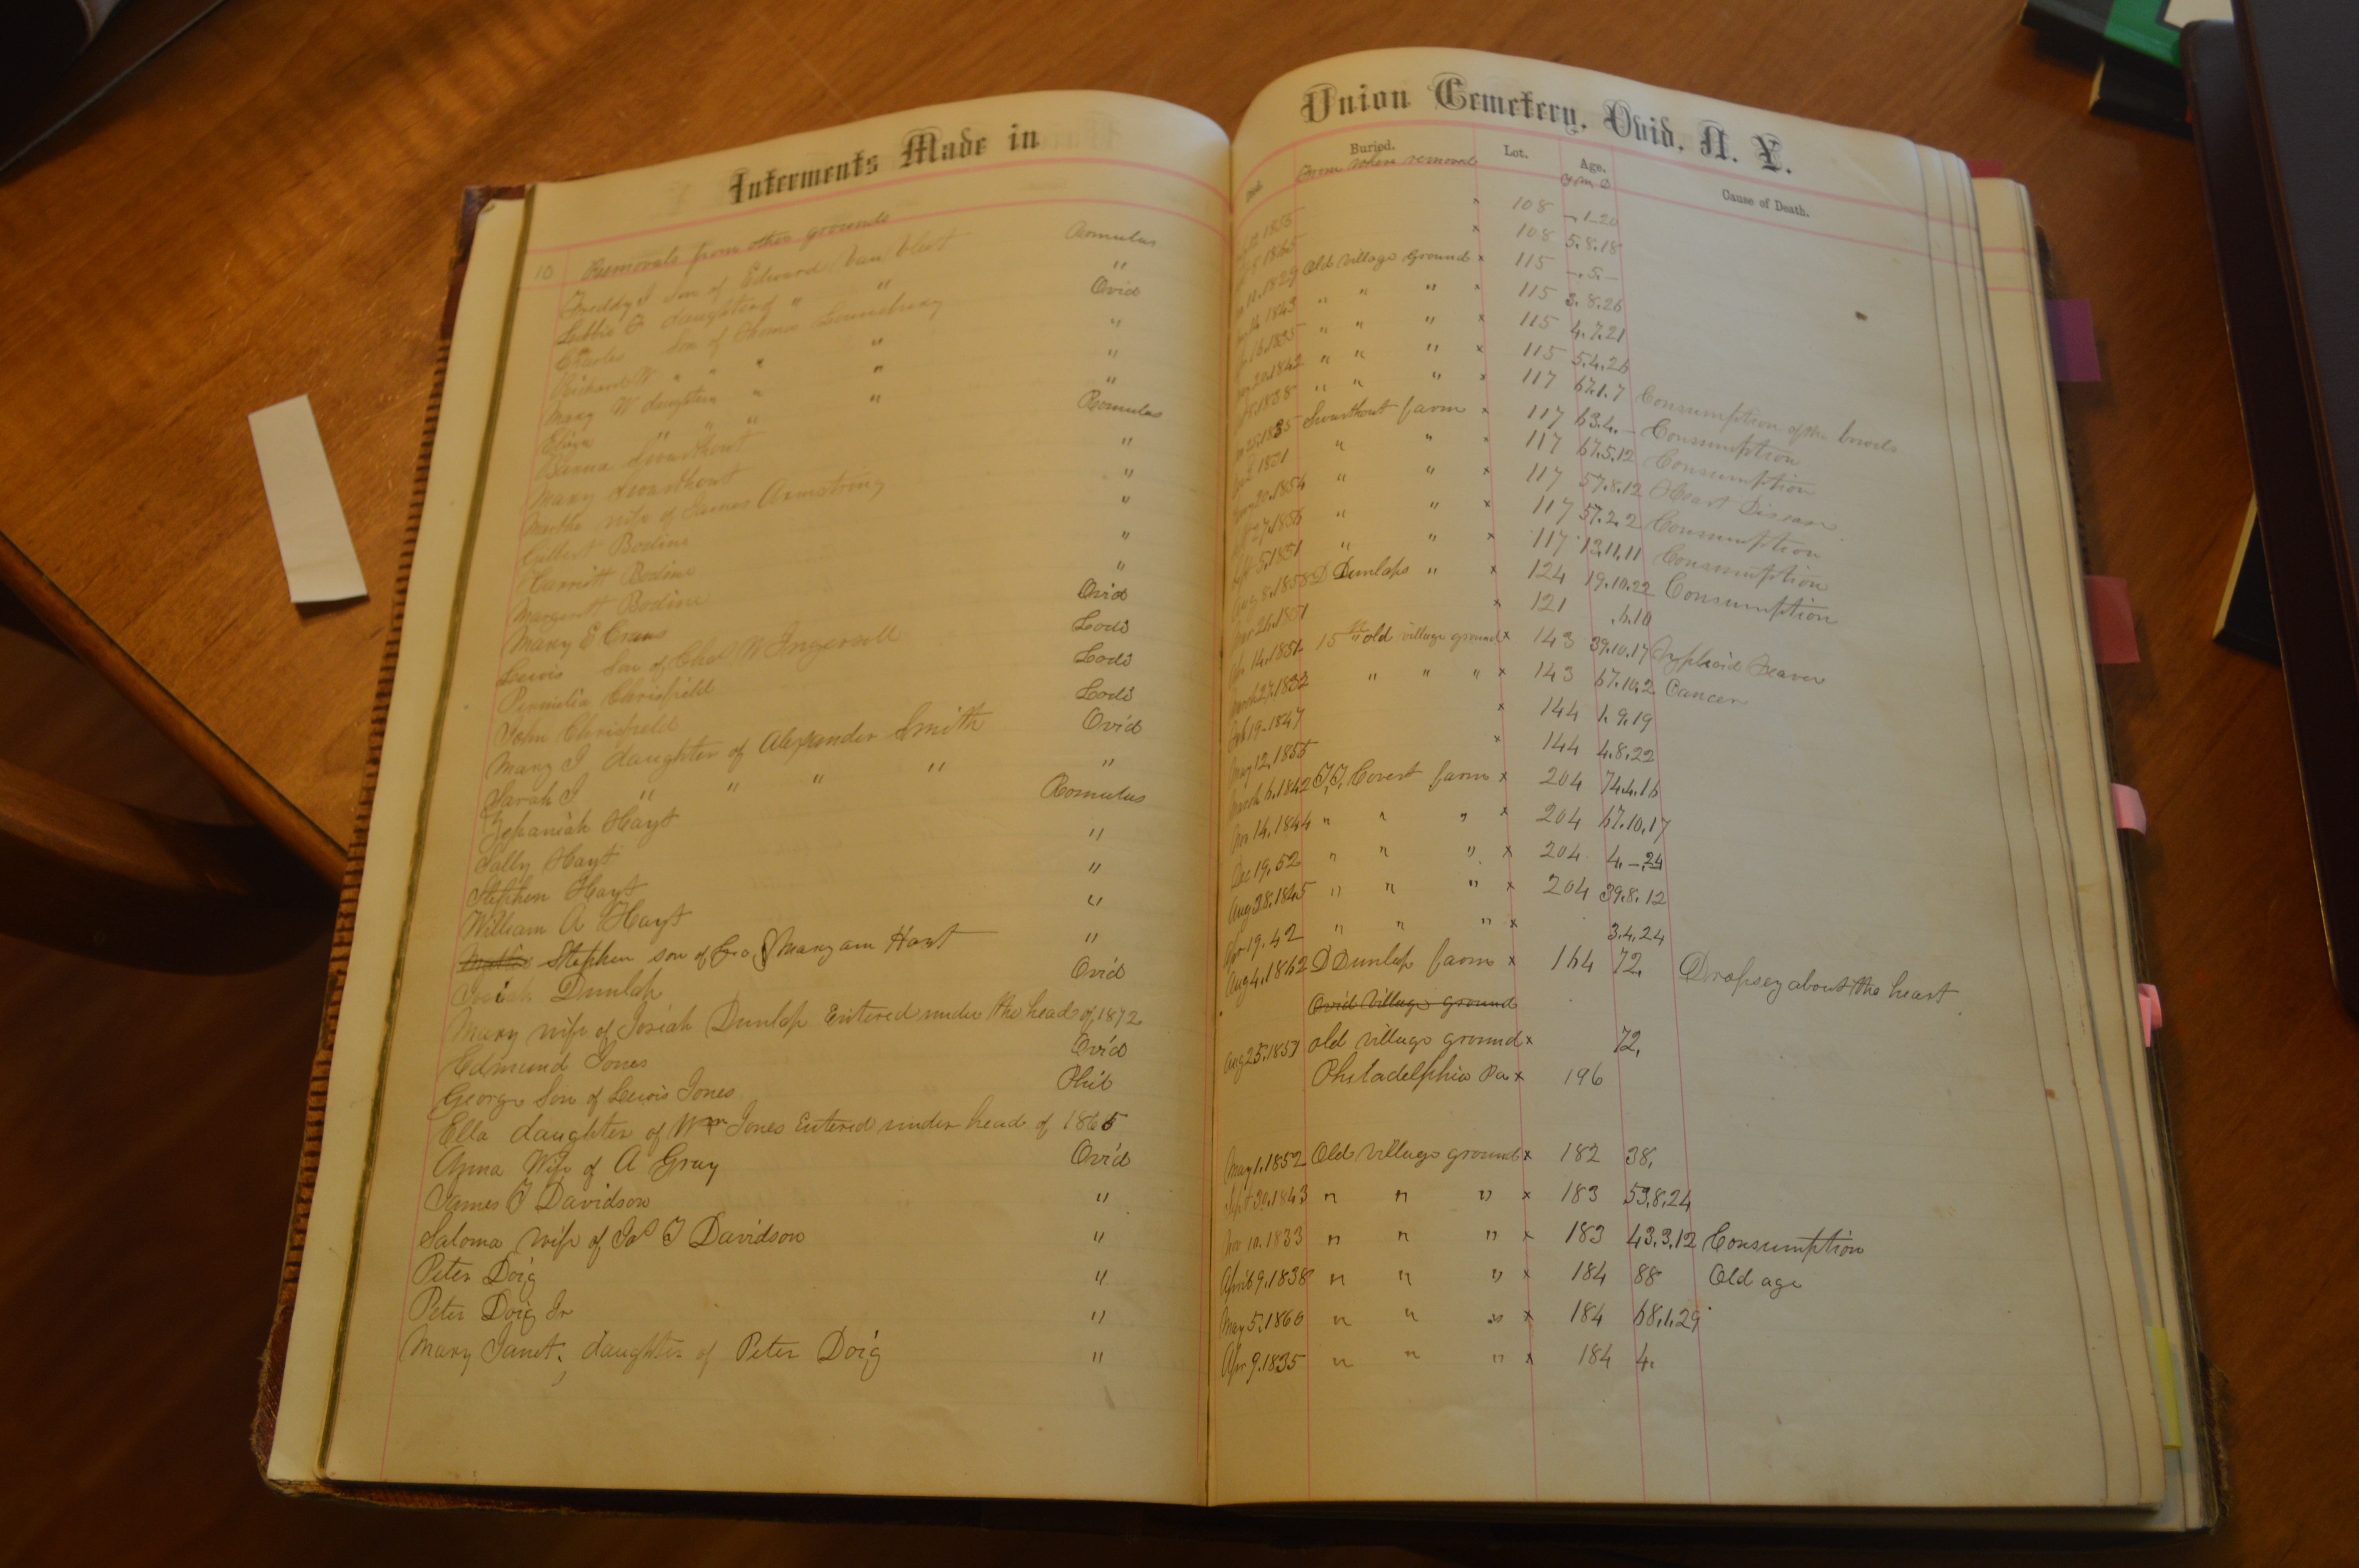 Interments Made in
10 Removals from other grounds
Freddy J son of Edward Van Vleet Romulus
Libbie daughter of " " "
Charles Son of Thomas Lounsberry Ovid
Richard W " " " " "
Mary W daughter " " "
Eliza " " " " "
Swarthout Romulus
Mary Swarthout "
Martha wife of James Armstrong "
Gilbert Bodine "
Garritt Bodine "
Margaret Bodine "
Mary E Evans Ovid
Lewis Son of Chas W Ingersoll Lodi
Permilia Chrisfield Lodi
John Chrisfield Lodi
Mary J daughter of Alexander Smith Ovid
Sarah J " " " " "
Zephaniah Hayt Romulus
Sally Hayt "
Stephen Hayt "
William A Hayt "
Stephen son of Geo & Mary am Hart "
Josiah Dunlap Ovid
Mary wife of Josiah Dunlap Entered under the head of 1872
Edmund Jones Ovid
George Son of Lewis Jones Phil
Ella daughter of Wm Jones Entered under head of 1865
Anna Wife of A Gray Ovid
James T Davidson "
Saloma wife of Jas T Davidson "
Peter Doig "
Peter Doig Jr "
Mary Janet, daughter of Peter Doig "
Union Cemetery, Ovid, N. Y.
Died. Buried. Lot. Age. Cause of Death.
From where removed Y M D
1855 x 108 -.1.20
1865 x 108 5.8.18
1829 Old village ground x 115 -.5.-
1843 " " " x 115 3.8.26
1835 " " " x 115 4.7.21
20.1842 " " " x 115 5.4.26
1838 " " " x 117 67.1.7 Consumption of the bowels
25.1835 Swarthout farm x 117 63.4.- Consumption
1851 " " x 117 67.5.12 Consumption
20.1854 " " x 117 57.8.12 Heart Disease
27.1855 " " x 117 57.2.2 Consumption
5.1851 " " x 117 13.11.11 Consumption
Aug 8.1858 D Dunlaps " x 124 19.10.22 Consumption
26.1851 x 121 .6.10
14.1851 15 old village ground x 143 39.10.17 Typhoid Feaver
March 27.1832 " " " x 143 67.10.2 Cancer
Feb 19-1847 x 144 1.9.19
May 12.1855 x 144 4.8.22
March 6.1842 Covert farm x 204 74.4.16
Nov 14.1844 " " " x 204 67.10.17
Dec 19.52 " " " x 204 4.-.24
Aug 28.1845 " " " x 204 39.8.12
Apr 19.42 " " " x 3.4.24
Aug 4.1862 D Dunlap farm x 164 72. Dropsey about the heart
Ovid Village ground
Aug 25.1851 old village ground x 72.
Philadelphia Pa x 196
May 1.1852 Old village ground x 182 38.
Sept 30.1843 " " " x 183 53.8.24
Nov 10.1833 " " " x 183 43.3.12 Consumption
April 9.1838 " " " x 184 88 Old age
May 5.1860 " " " x 184 68.1.29
Apr 9.1835 " " " x 184 4.